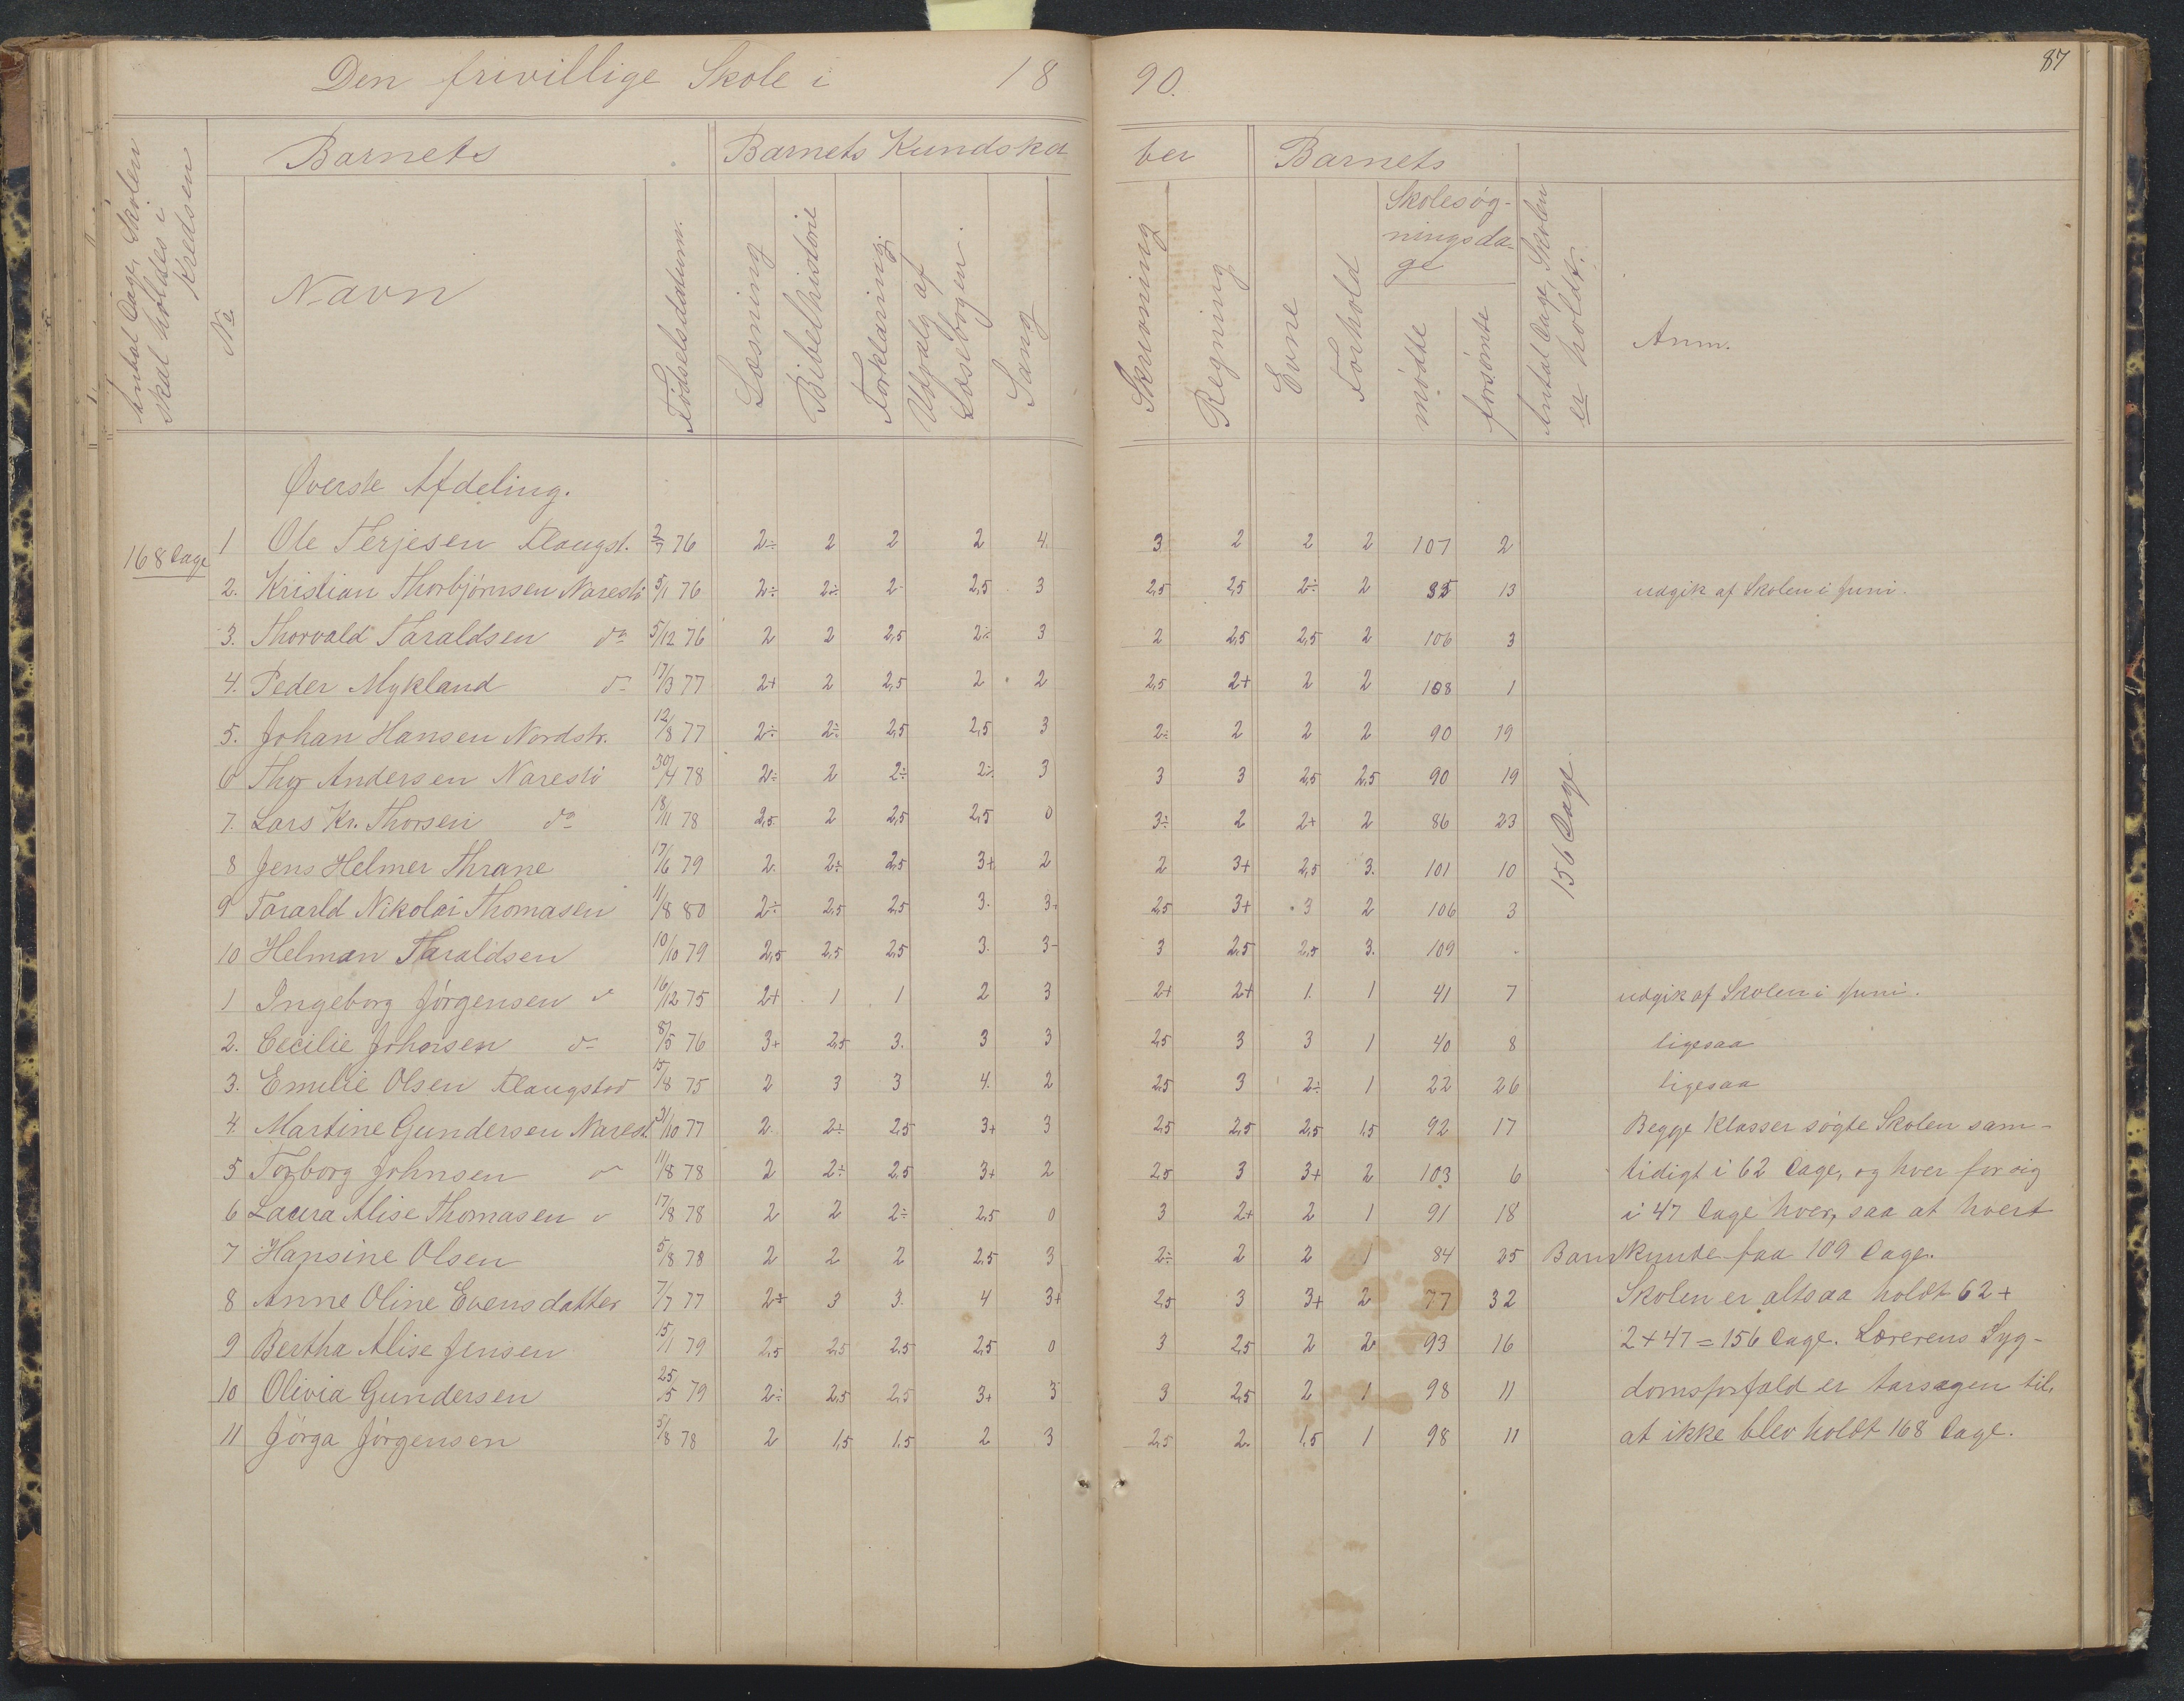 Den frivillige Skole i 1890.
87
Barnets Barnets Kundskaber Barnets
Antal Dage, Skolen skal holdes i Kredsen
No
Navn
Fødselsdatum.
Læsning
Bibelhistorie
Forklaring
Udvalg af Læsebogen.
Sang
Skrivning
Regning
Evne
Forhold
Skolesøgningsdage
mødte
forsømte
Antal Dage, Skolen er holdt.
Anm.
Øverste Afdeling.
168 Dage
156 Dage
1 Ole Terjesen Flaugst. 2/7 76 2÷ 2 2 2 4. 3 2 2 2 107 2
2. Kristian Thorbjørnsen Narestø 5/1 76 2÷ 2÷ 2 2,5 3 2,5 2,5 2÷ 2 35 13 udgik af Skolen i Juni.
3. Thorvald Taraldsen do 5/12 76 2 2 2,5 2÷ 3 2 2,5 2,5 2 106 3
4. Peder Mykland do 17/3 77 2+ 2 2,5 2 2 2,5 2+ 2 2 108 1
5. Johan Hansen Nordstr. 12/8 77 2÷ 2÷ 2,5 2,5 3 2÷ 2 2 2 90 19
6 Thor Andersen Narestø 30/4 78 2÷ 2 2÷ 2÷ 3 3 3 2,5 2,5 90 19
7. Lars Kr. Thorsen do 18/11 78 2,5 2 2,5 2,5 0 3÷ 2 2+ 2 86 23
8 Jens Helmer Thrane 17/6 79 2. 2÷ 2,5 3+ 2 2 3+ 2,5 3. 101 10
9 Tararld Nikolai Thomasen 11/8 80 2÷ 2,5 2,5 3. 3+ 2,5 3+ 3 2 106 3
10 Helman Taraldsen 10/10 79 2,5 2,5 2,5 3. 3- 3 2,5 2,5 3. 109 -
1 Ingeborg Jørgensen do 16/12 75 2+ 1 1 2 3 2+ 2+ 1. 1 41 7 udgik af Skolen i Juni.
2. Cecilie Johnsen do 8/5 76 3+ 2,5 3. 3 3 2,5 3 3 1 40 8 ligesaa
3. Emilie Olsen Flaugstad 15/8 75 2 3 3 4. 2 2,5 3 2÷ 1 22 26 ligesaa
4. Martine Gundersen Narest. 31/10 77 2. 2÷ 2,5 3+ 3 2,5 2,5 2,5 1,5 92 17 Begge Klasser søgte Skolen sam-
5 Torborg Johnsen do 11/8 78 2 2÷ 2,5 3+ 2 2,5 3 3+ 2 103 6 tidigt i 62 Dage, og hver for sig
6 Laura Alise Thomasen do 17/8 78 2 2 2÷ 2,5 0 3 2+ 2 1 91 18 i 47 Dage hver, saa at hvert
7 Hansine Olsen 5/8 78 2 2 2 2,5 3 2÷ 2 2 1 84 25 Barn kunde faa 109 Dage.
8 Anne Oline Evensdatter 7/7 77 2÷ 3 3. 4 3+ 2,5 3 3+ 2 77 32 Skolen er altsaa holdt 62+
9 Bertha Alise Jensen 15/1 79 2,5 2,5 2,5 2,5 0 3 2,5 2 2 93 16 2×47=156 Dage. Lærerens Syg-
10 Olivia Gundersen 25/5 79 2÷ 2,5 2,5 3+ 3 3 2,5 2 1 98 11 domsforfald er aarsagen til,
11 Jørga Jørgensen 5/8 78 2 1,5 1,5 2 3 2,5 2. 1,5 1 98 11 at ikke blev holdt 168 Dage.